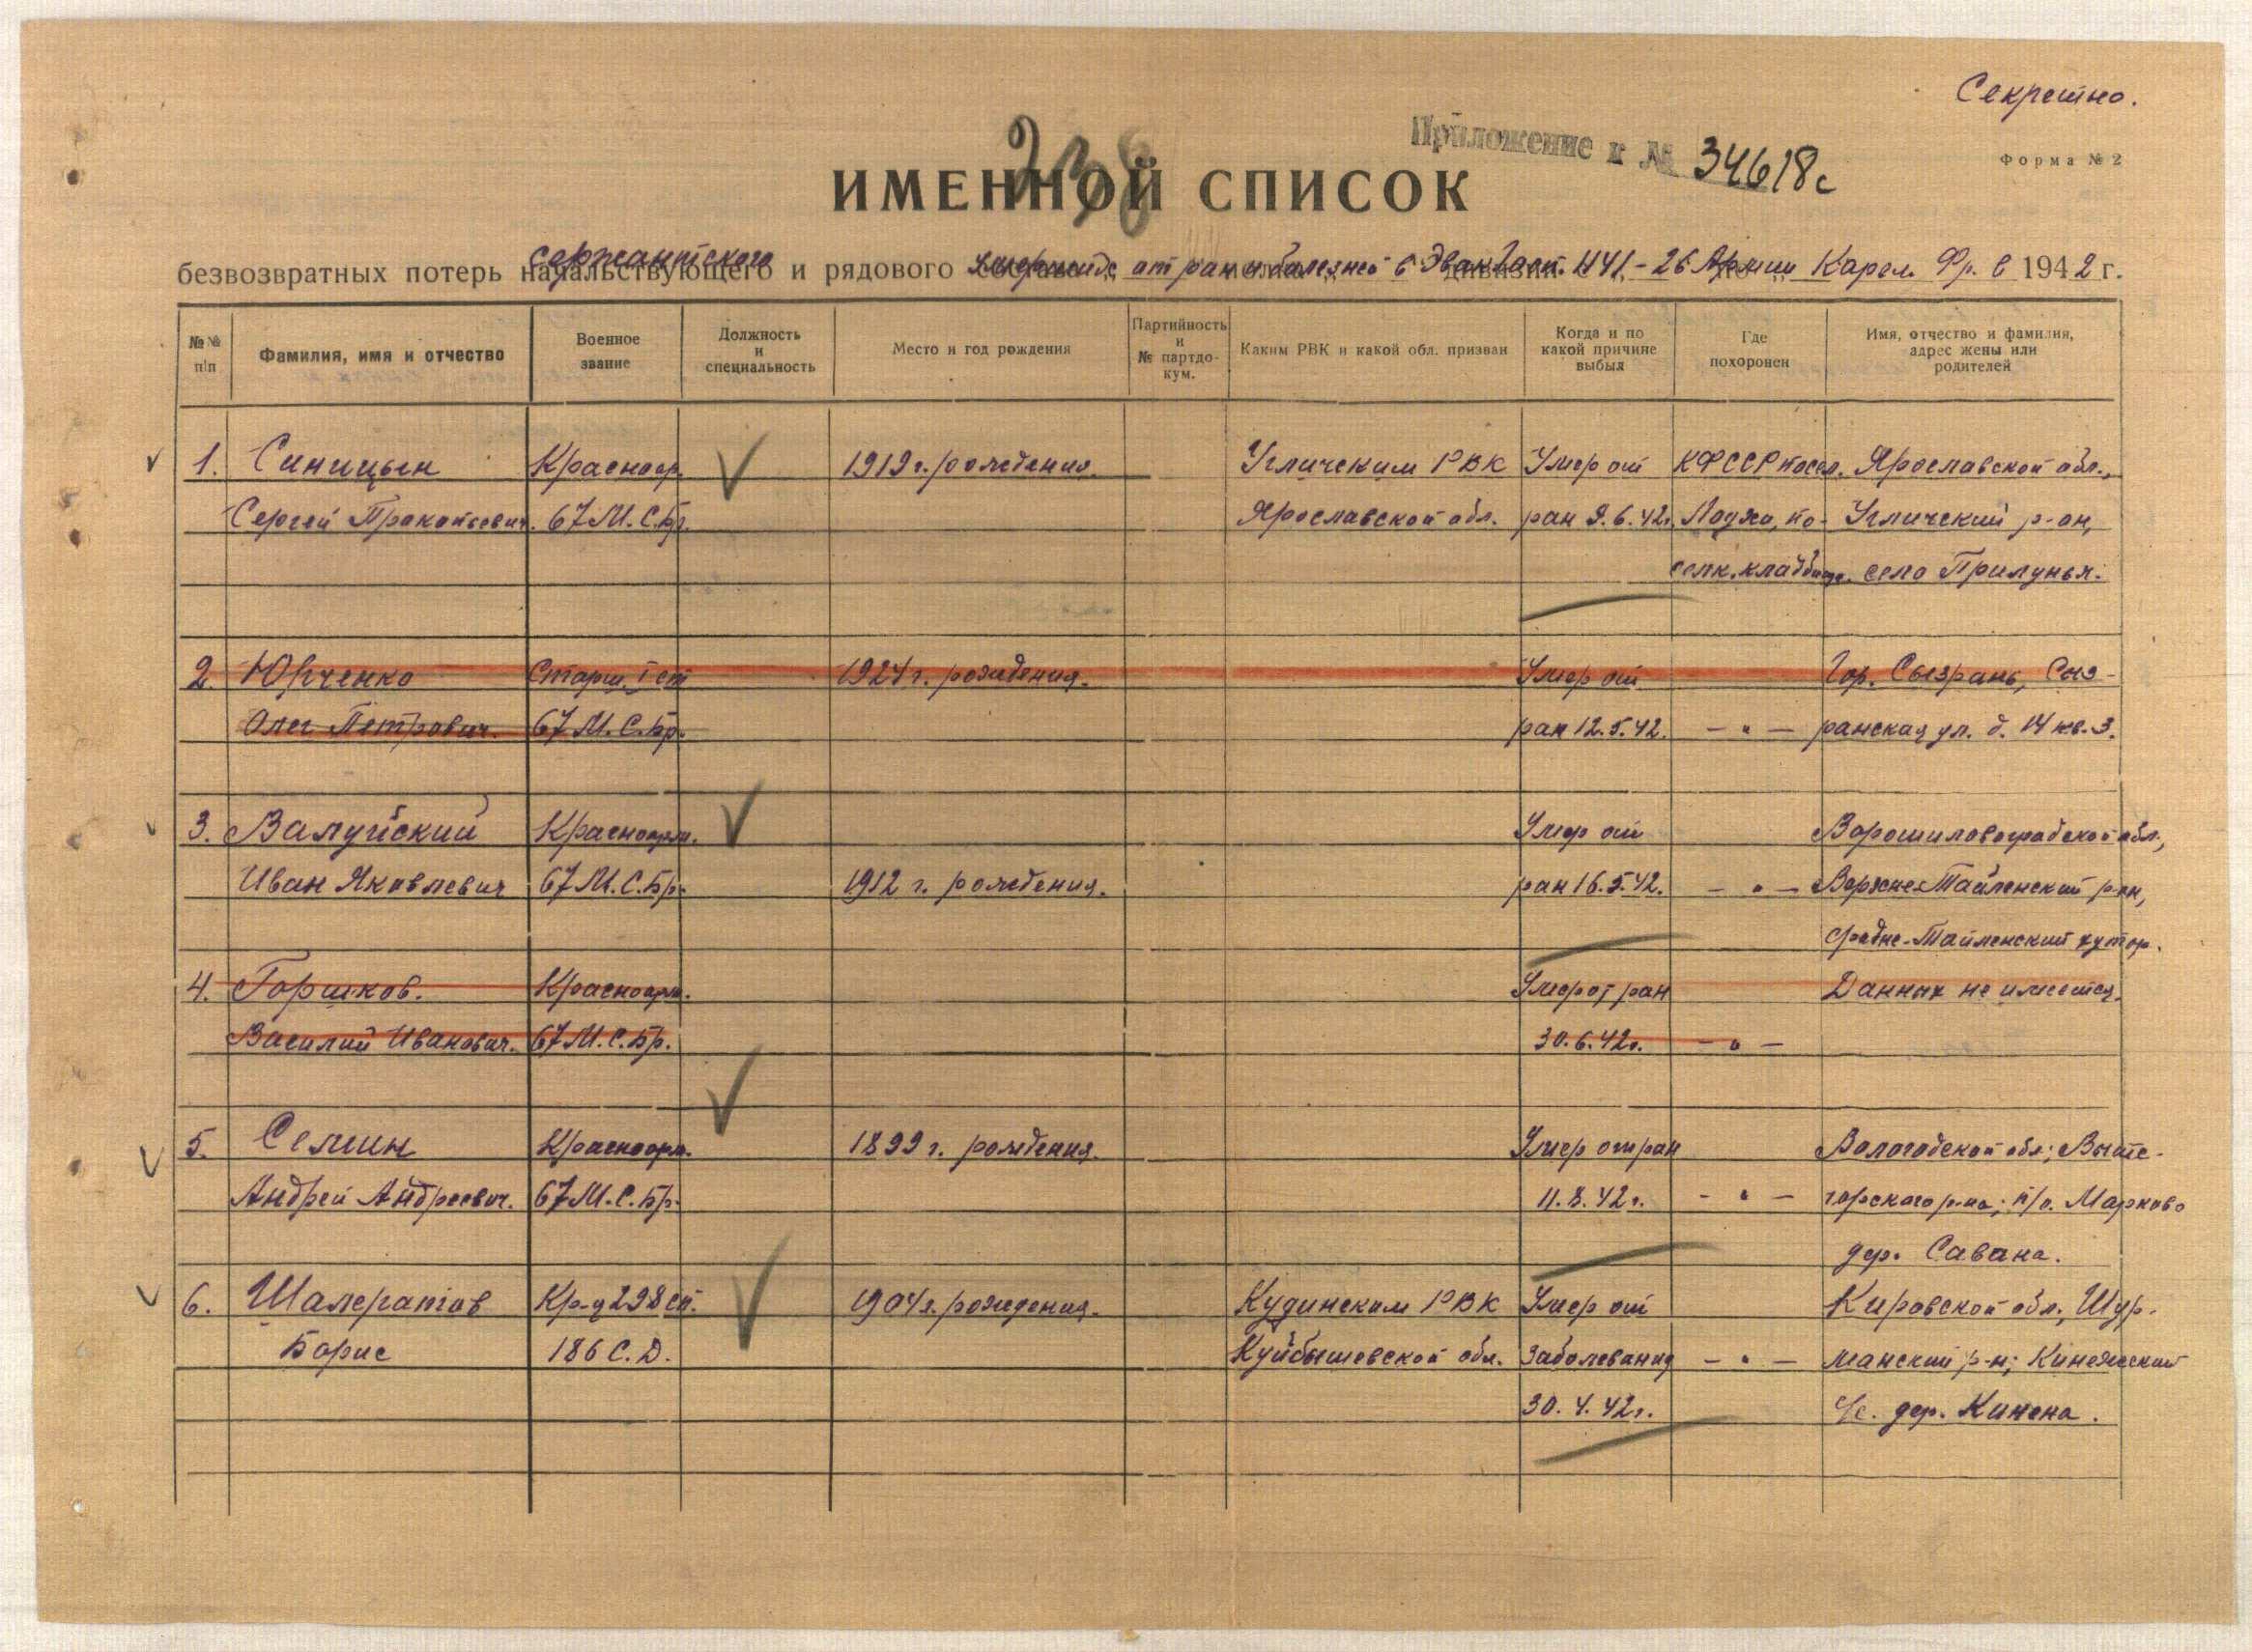 Секретно.
Приложение к № 34618с
Форма № 2
ИМЕННОЙ СПИСОК
238
сержантского
безвозвратных потерь начальствующего и рядового умерших от ран и болезней в Эвак. Госп. 1141 - 26 Армии Карел. Фр. в 1942 г.
№№ п/п
Фамилия, имя и отчество
Военное звание
Должность и специальность
Место и год рождения
Партийность и № партдокум.
Каким РВК и какой обл. призван
Когда и по какой причине выбыл
Где похоронен
Имя, отчество и фамилия, адрес жены или родителей
1. Синицын Красноар. 1919 г. рождения. Угличским РВК Умер от КФССР посел. Ярославской обл.,
Сергей Прокопьевич. 67 М.С.Бр. Ярославской обл. ран 9.6.42г. Лоухи, по- Угличский р-он,
селк. кладбище. село Прилунья.
2. Юрченко Старш. 1 ст 1924 г. рождения. Умер от Гор. Сызрань, Сыз-
Олег Петрович. 67 М.С.Бр. ран 12.5.42. — " — ранская ул. д. 14 кв. 3.
3. Валуйский Красноарм. Умер от Ворошиловоградской обл.,
Иван Яковлевич 67 М.С.Бр. 1912 г. рождения. ран 16.5.42. — " — Верхне-Тайленский р-он,
Средне-Тайменский хутор.
4. Горшков. Красноарм. Умер от ран Данных не имеется.
Василий Иванович. 67 М.С.Бр. 30.6.42г. — " —
5. Семин Красноарм. 1899 г. рождения. Умер от ран Вологодской обл; Выте-
Андрей Андреевич. 67 М.С.Бр. 11.8.42г. — " — горского р-на; п/о. Марково
дер. Савана.
6. Шалерапов Кр-ц 298 сп. 1904 г. рождения. Кудинским РВК Умер от Кировской обл., Шур-
Борис 186 С.Д. Куйбышевской обл. заболевания — " — манский р-н; Кинежский
30.4.42г. с/с. дер. Кинена.